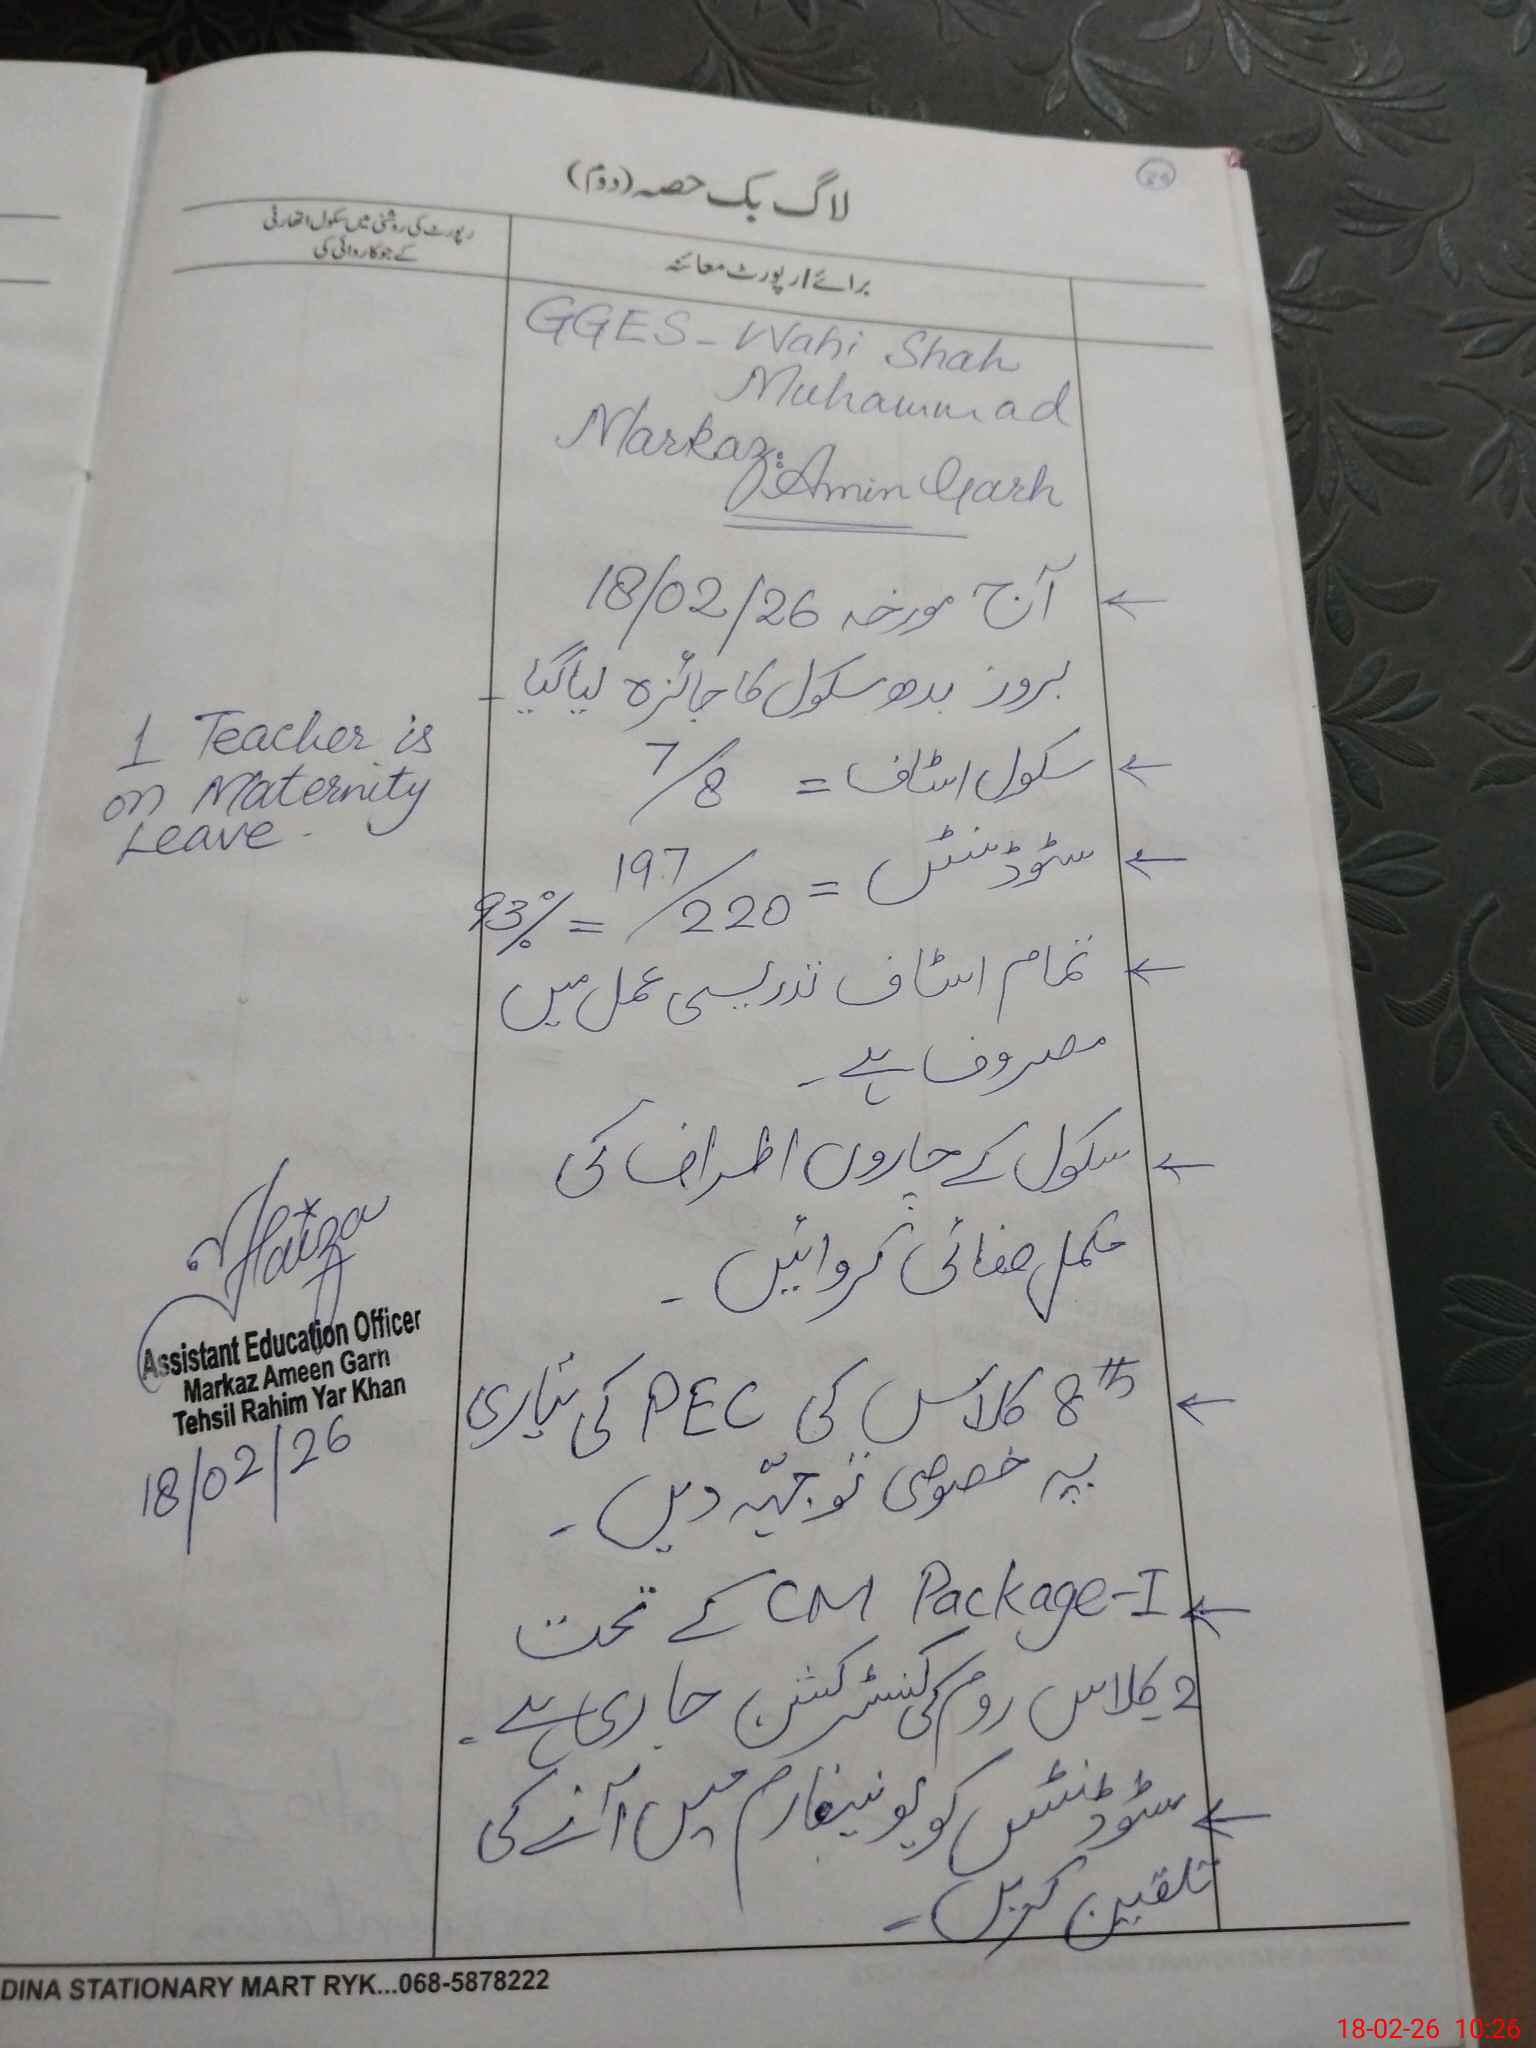 لاگ بک حصہ (دوم)
رپورٹ کی روشنی میں سکول اتھارٹی
کے جو کاروائی کی
برائے / رپورٹ معائنہ
GGES - Wahi Shah
Muhammad
Markaz:
Amin Garh
آج مورخہ 18/02/26
بروز بدھ سکول کا جائزہ لیا گیا۔
سکول اسٹاف = 7/8
1 Teacher is
on Maternity
Leave.
سٹوڈنٹس = 197/220 = 93%
تمام اسٹاف تدریسی عمل میں
مصروف ہے۔
سکول کے چاروں اطراف کی
مکمل صفائی کروائیں۔
8th کلاس کی PEC کی تیاری
پہ خصوصی توجہّ دیں۔
CM Package-I کے تحت
2 کلاس روم کی کنسٹرکشن جاری ہے۔
سٹوڈنٹس کو یونیفارم میں آنے کی
تلقین کریں۔
Faiza
Assistant Education Officer
Markaz Ameen Garh
Tehsil Rahim Yar Khan
18/02/26
DINA STATIONARY MART RYK...068-5878222
18-02-26 10:26